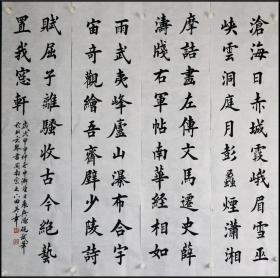 滄海日赤城霞峨眉雪巫
峽雲洞庭月彭蠡煙瀟湘
摩詰畫左傳文馬遷史薛
濤牋右軍帖南華經相如
雨武夷峰廬山瀑布合宇
宙奇觀繪吾齋壁少陵詩
賦屈子離騷收古今絶藝
置我窓軒